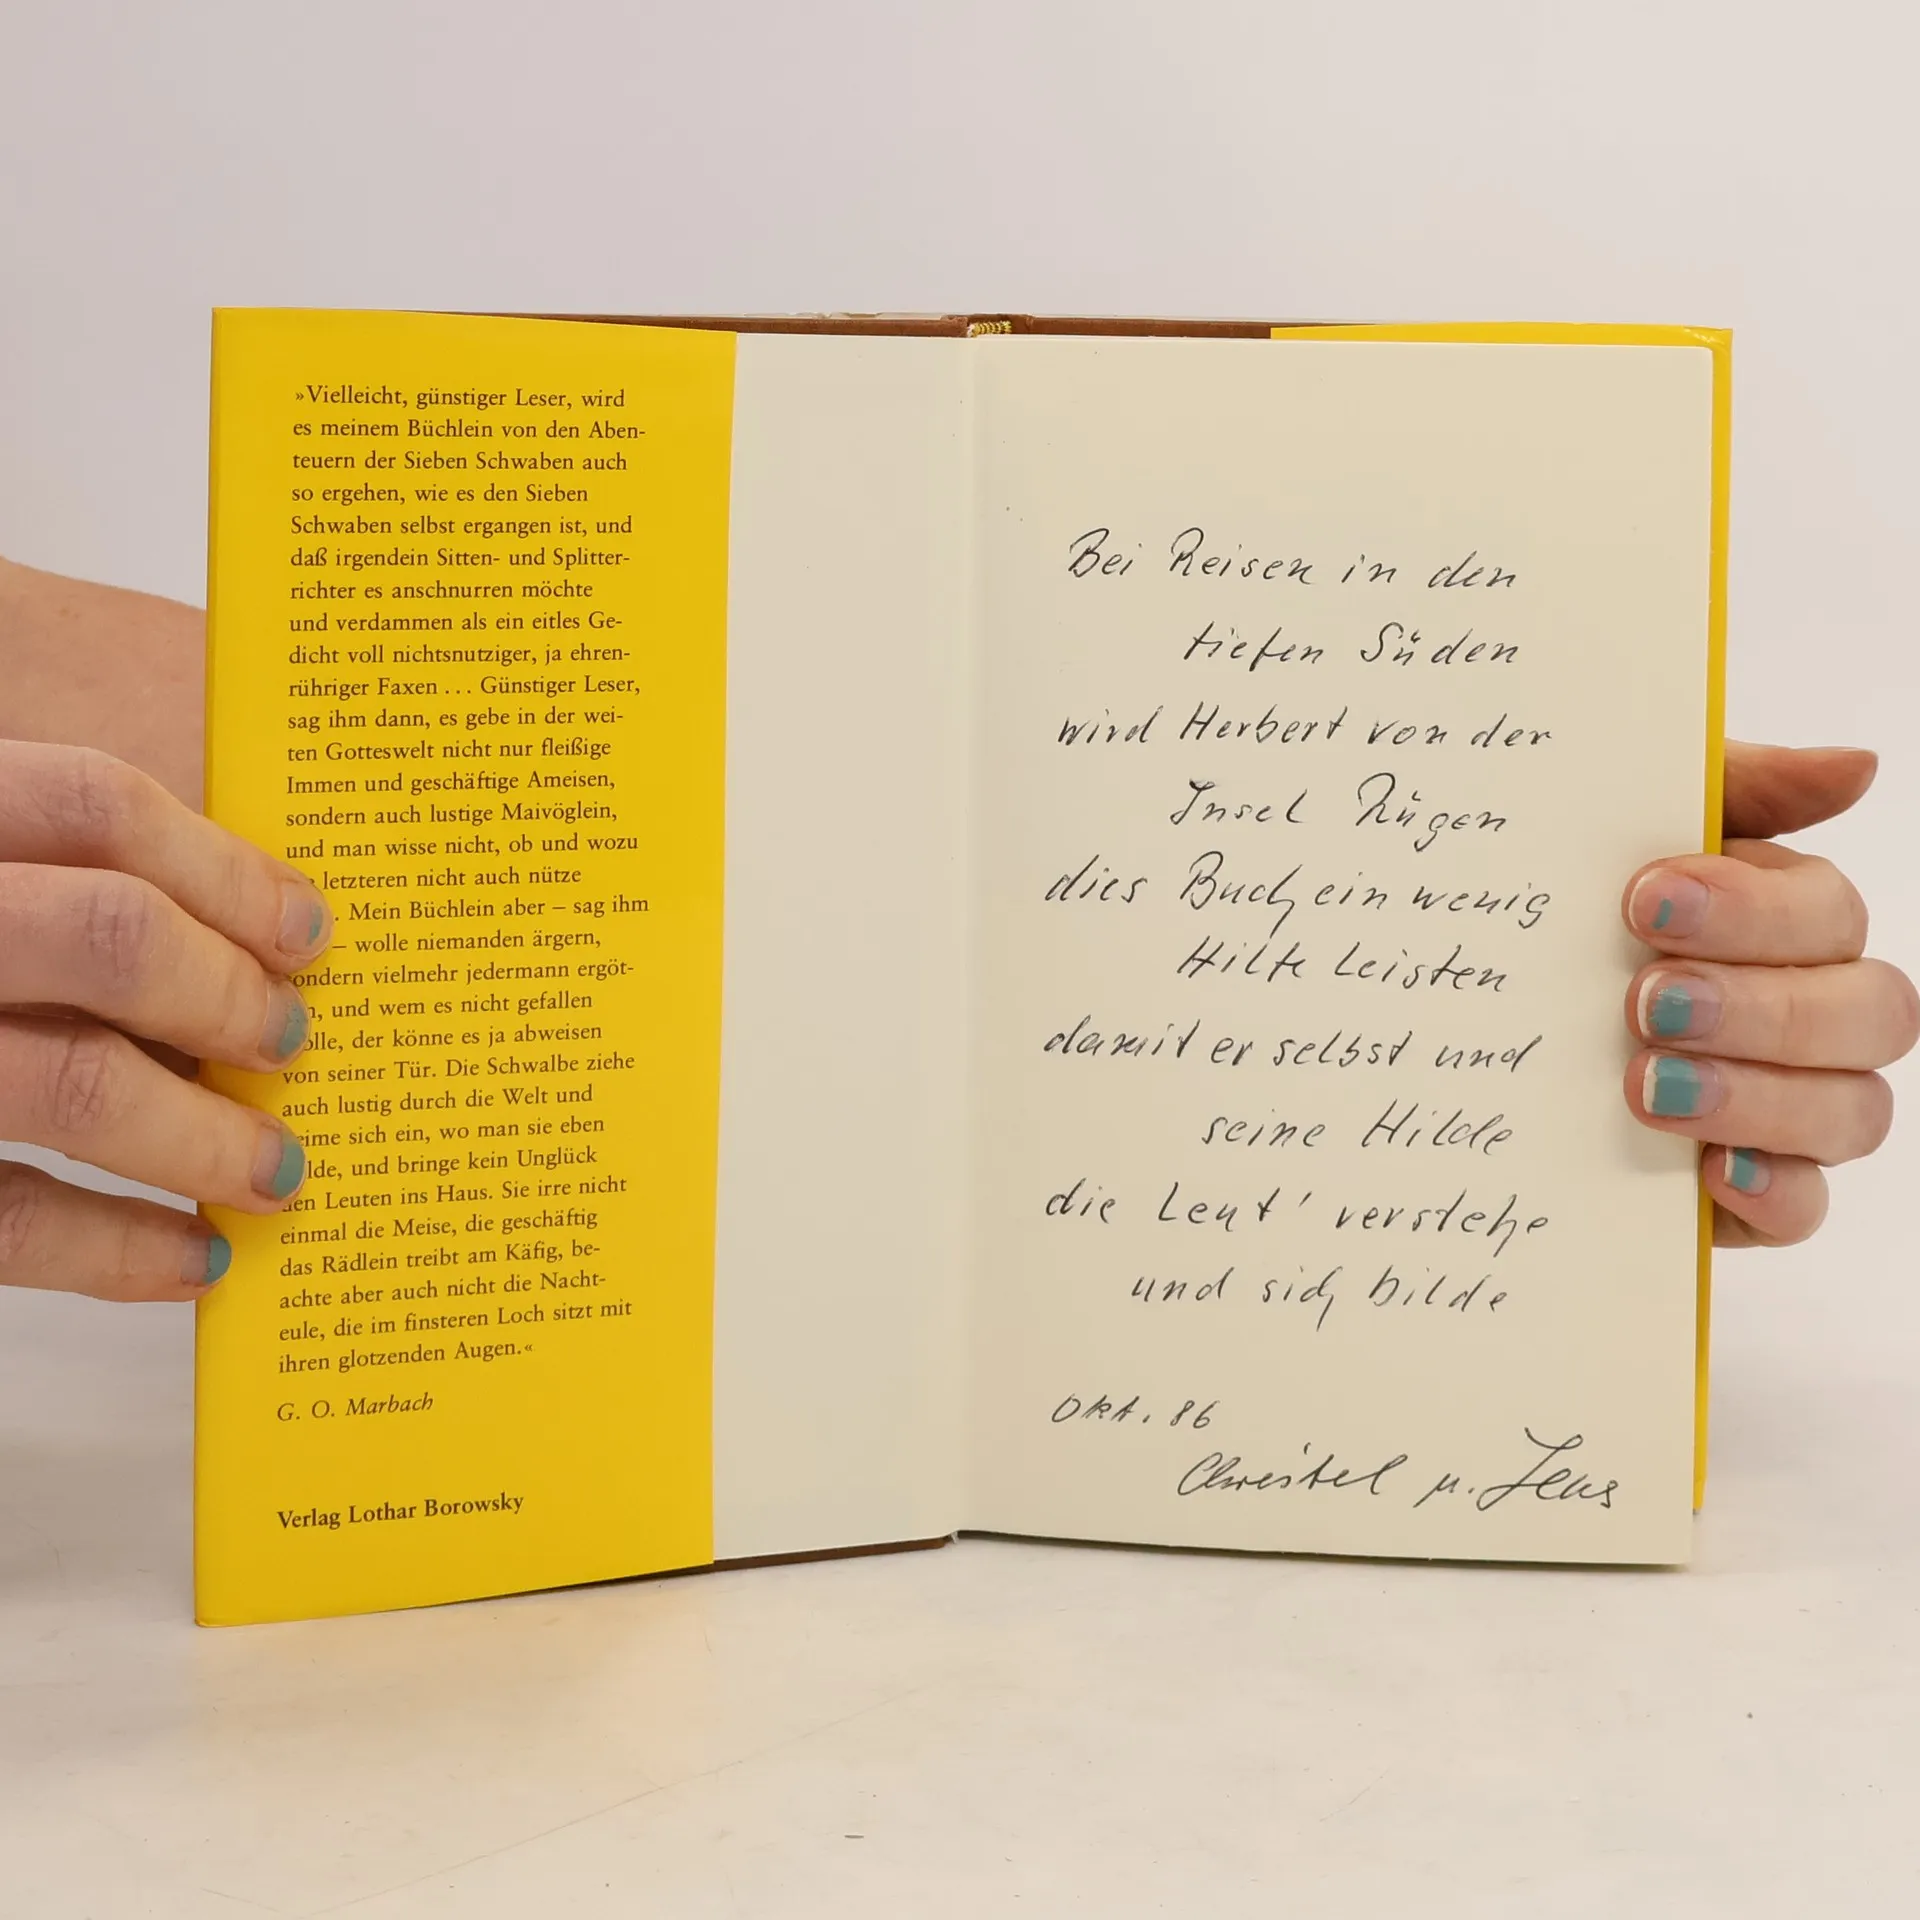 »Vielleicht, günstiger Leser, wird
es meinem Büchlein von den Aben-
teuern der Sieben Schwaben auch
so ergehen, wie es den Sieben
Schwaben selbst ergangen ist, und
daß irgendein Sitten- und Splitter-
richter es anschnurren möchte
und verdammen als ein eitles Ge-
dicht voll nichtsnutziger, ja ehren-
rühriger Faxen ... Günstiger Leser,
sag ihm dann, es gebe in der wei-
ten Gotteswelt nicht nur fleißige
Immen und geschäftige Ameisen,
sondern auch lustige Maivöglein,
und man wisse nicht, ob und wozu
letzteren nicht auch nütze
. Mein Büchlein aber – sag ihm
– wolle niemanden ärgern,
sondern vielmehr jedermann ergöt-
, und wem es nicht gefallen
, der könne es ja abweisen
von seiner Tür. Die Schwalbe ziehe
auch lustig durch die Welt und
sich ein, wo man sie eben
, und bringe kein Unglück
den Leuten ins Haus. Sie irre nicht
einmal die Meise, die geschäftig
das Rädlein treibt am Käfig, be-
achte aber auch nicht die Nacht-
eule, die im finsteren Loch sitzt mit
ihren glotzenden Augen.«
G. O. Marbach
Verlag Lothar Borowsky
Bei Reisen in den
tiefen Süden
wird Herbert von der
Insel Rügen
dies Buch ein wenig
Hilfe leisten
damit er selbst und
seine Hilde
die Leut' verstehe
und sich bilde
Okt. 86
Christel u. Jens